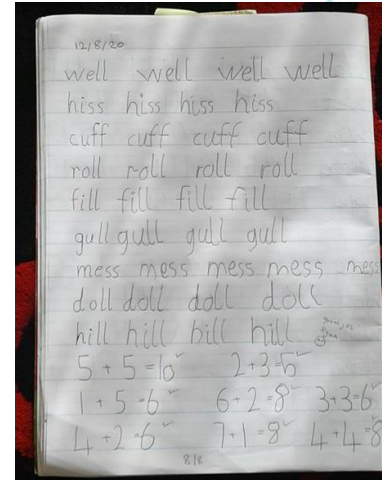 12/8/20
well well well well
hiss hiss hiss hiss
cuff cuff cuff cuff
roll roll roll roll
fill fill fill fill
gull gull gull gull
mess mess mess mess mess
doll doll doll doll
hill hill hill hill
5 + 5 = 10 2 + 3 = 5
1 + 5 = 6 6 + 2 = 8 3 + 3 = 6
4 + 2 = 6 7 + 1 = 8 4 + 4 = 8
8/8